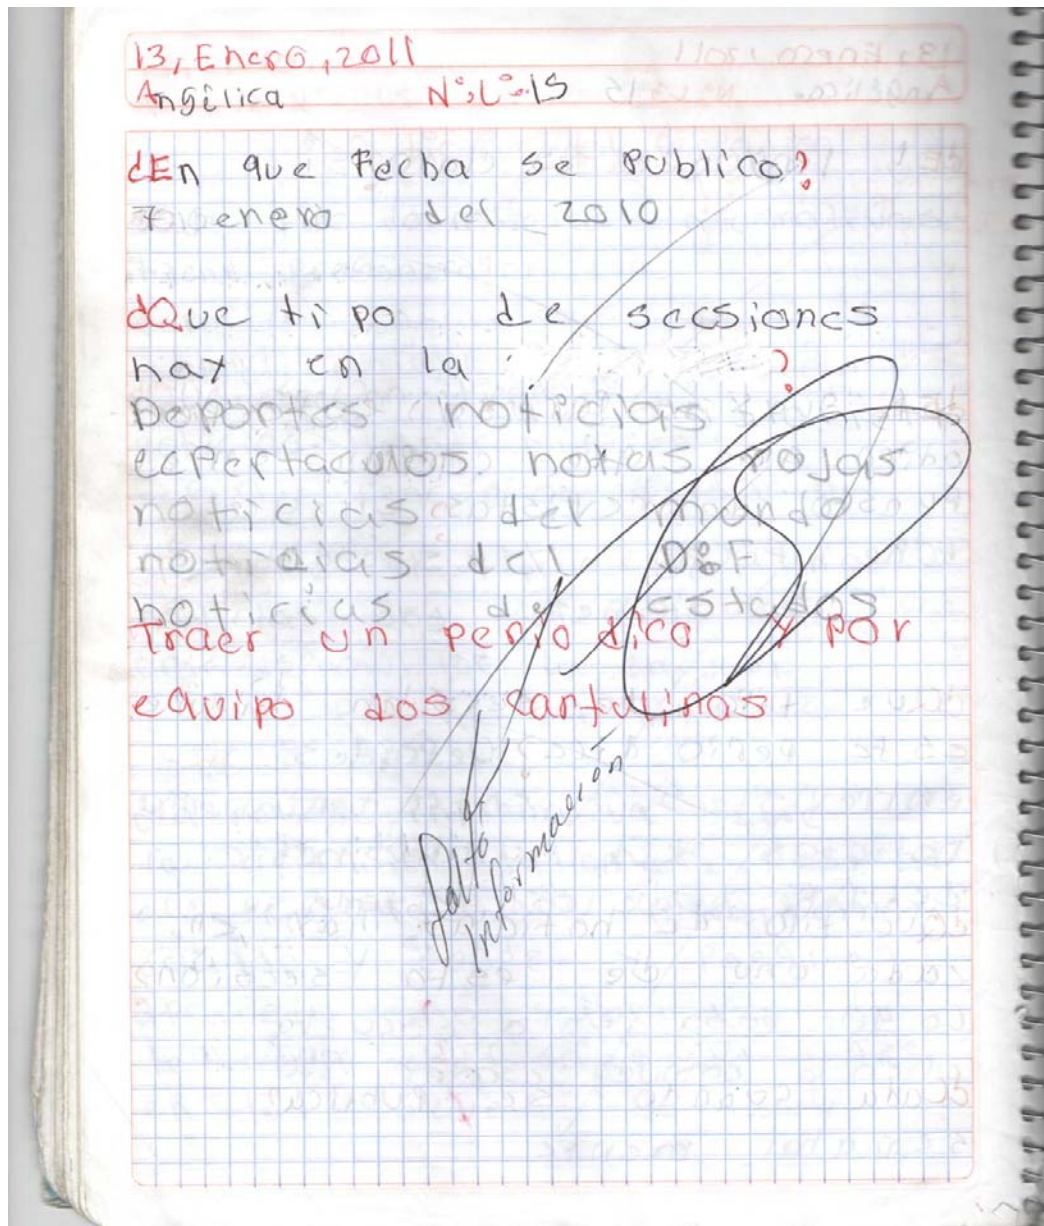 13, Enero, 2011
Angélica N°:L°:15
¿En que Fecha se publico?
7 enero del 2010
¿Que tipo de secsiones
hay en la ?
Deportes noticias
ecpertaculos notas rojas
noticias del mundo
notraias del D&F
noticias de estados
Traer un periodico y por
equipo dos cartulinas
Falto
información